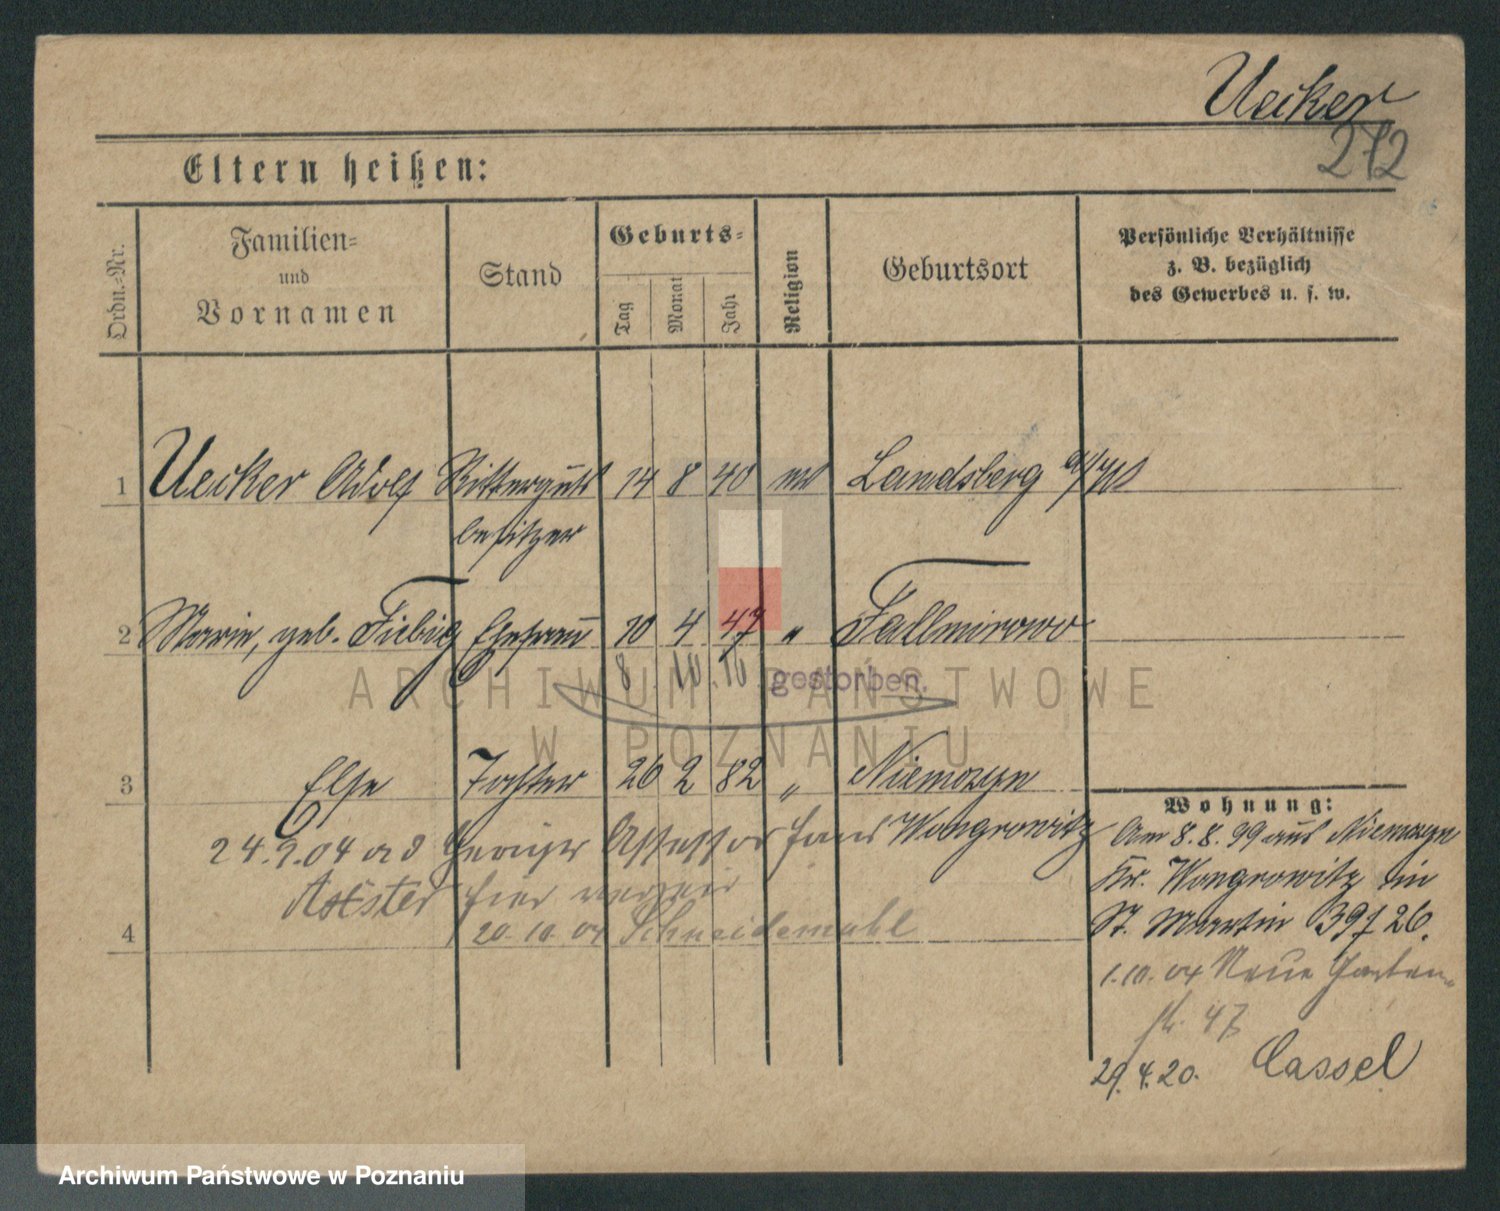 Uecker
272
Eltern heißen:
Ordn.=Nr.
Familien=
und
Vornamen
Stand
Geburts=
Tag
Monat
Jahr
Religion
Geburtsort
Persönliche Verhältnisse
z. B. bezüglich
des Gewerbes u. s. w.
1 Uecker Adolf Ritterguts 14 8 40 Landsberg a/W
besitzer
2 Marie, geb. Fiebig Ehefrau 10 4 47 " Fallmirowo
8 10. 16 gestorben.
ARCHIWUM PAŃSTWOWE
W POZNANIU
3 Else Tochter 26 2 82 " Niemczyn
24.9.04 Assessor Hans Wongrowitz
hier
4 20.10.04 Schneidemühl
Wohnung:
Am 8.8.99 aus Niemczyn
Kr. Wongrowitz in
St. Martin 39/26.
1.10.04 Neue Garten
str. 47
29.4.20. Cassel
Archiwum Państwowe w Poznaniu